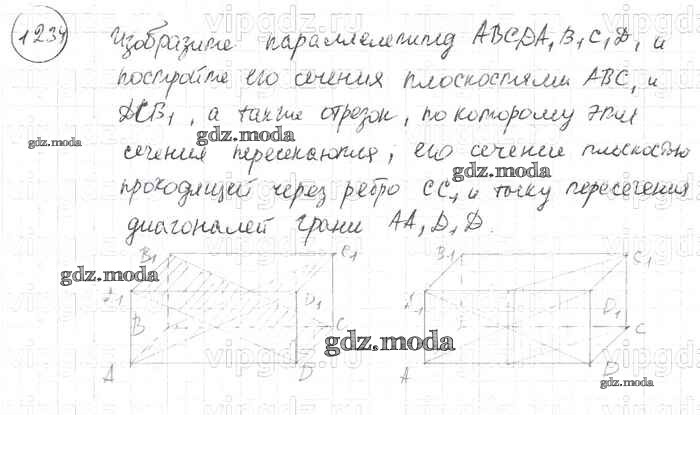 1234
Изобразите параллелепипед ABCDA₁B₁C₁D₁ и
постройте его сечения плоскостями ABC₁ и
DCB₁, а также отрезок, по которому эти
сечения пересекаются; его сечение плоскостью
проходящей через ребро CC₁ и точку пересечения
диагоналей грани AA₁D₁D.
gdz.moda
gdz.moda
gdz.moda
B₁ C₁ B₁ C₁
gdz.moda
A₁ D₁ A₁ D₁
B C B C
gdz.moda
A D A D
gdz.moda
vipgdz.ru